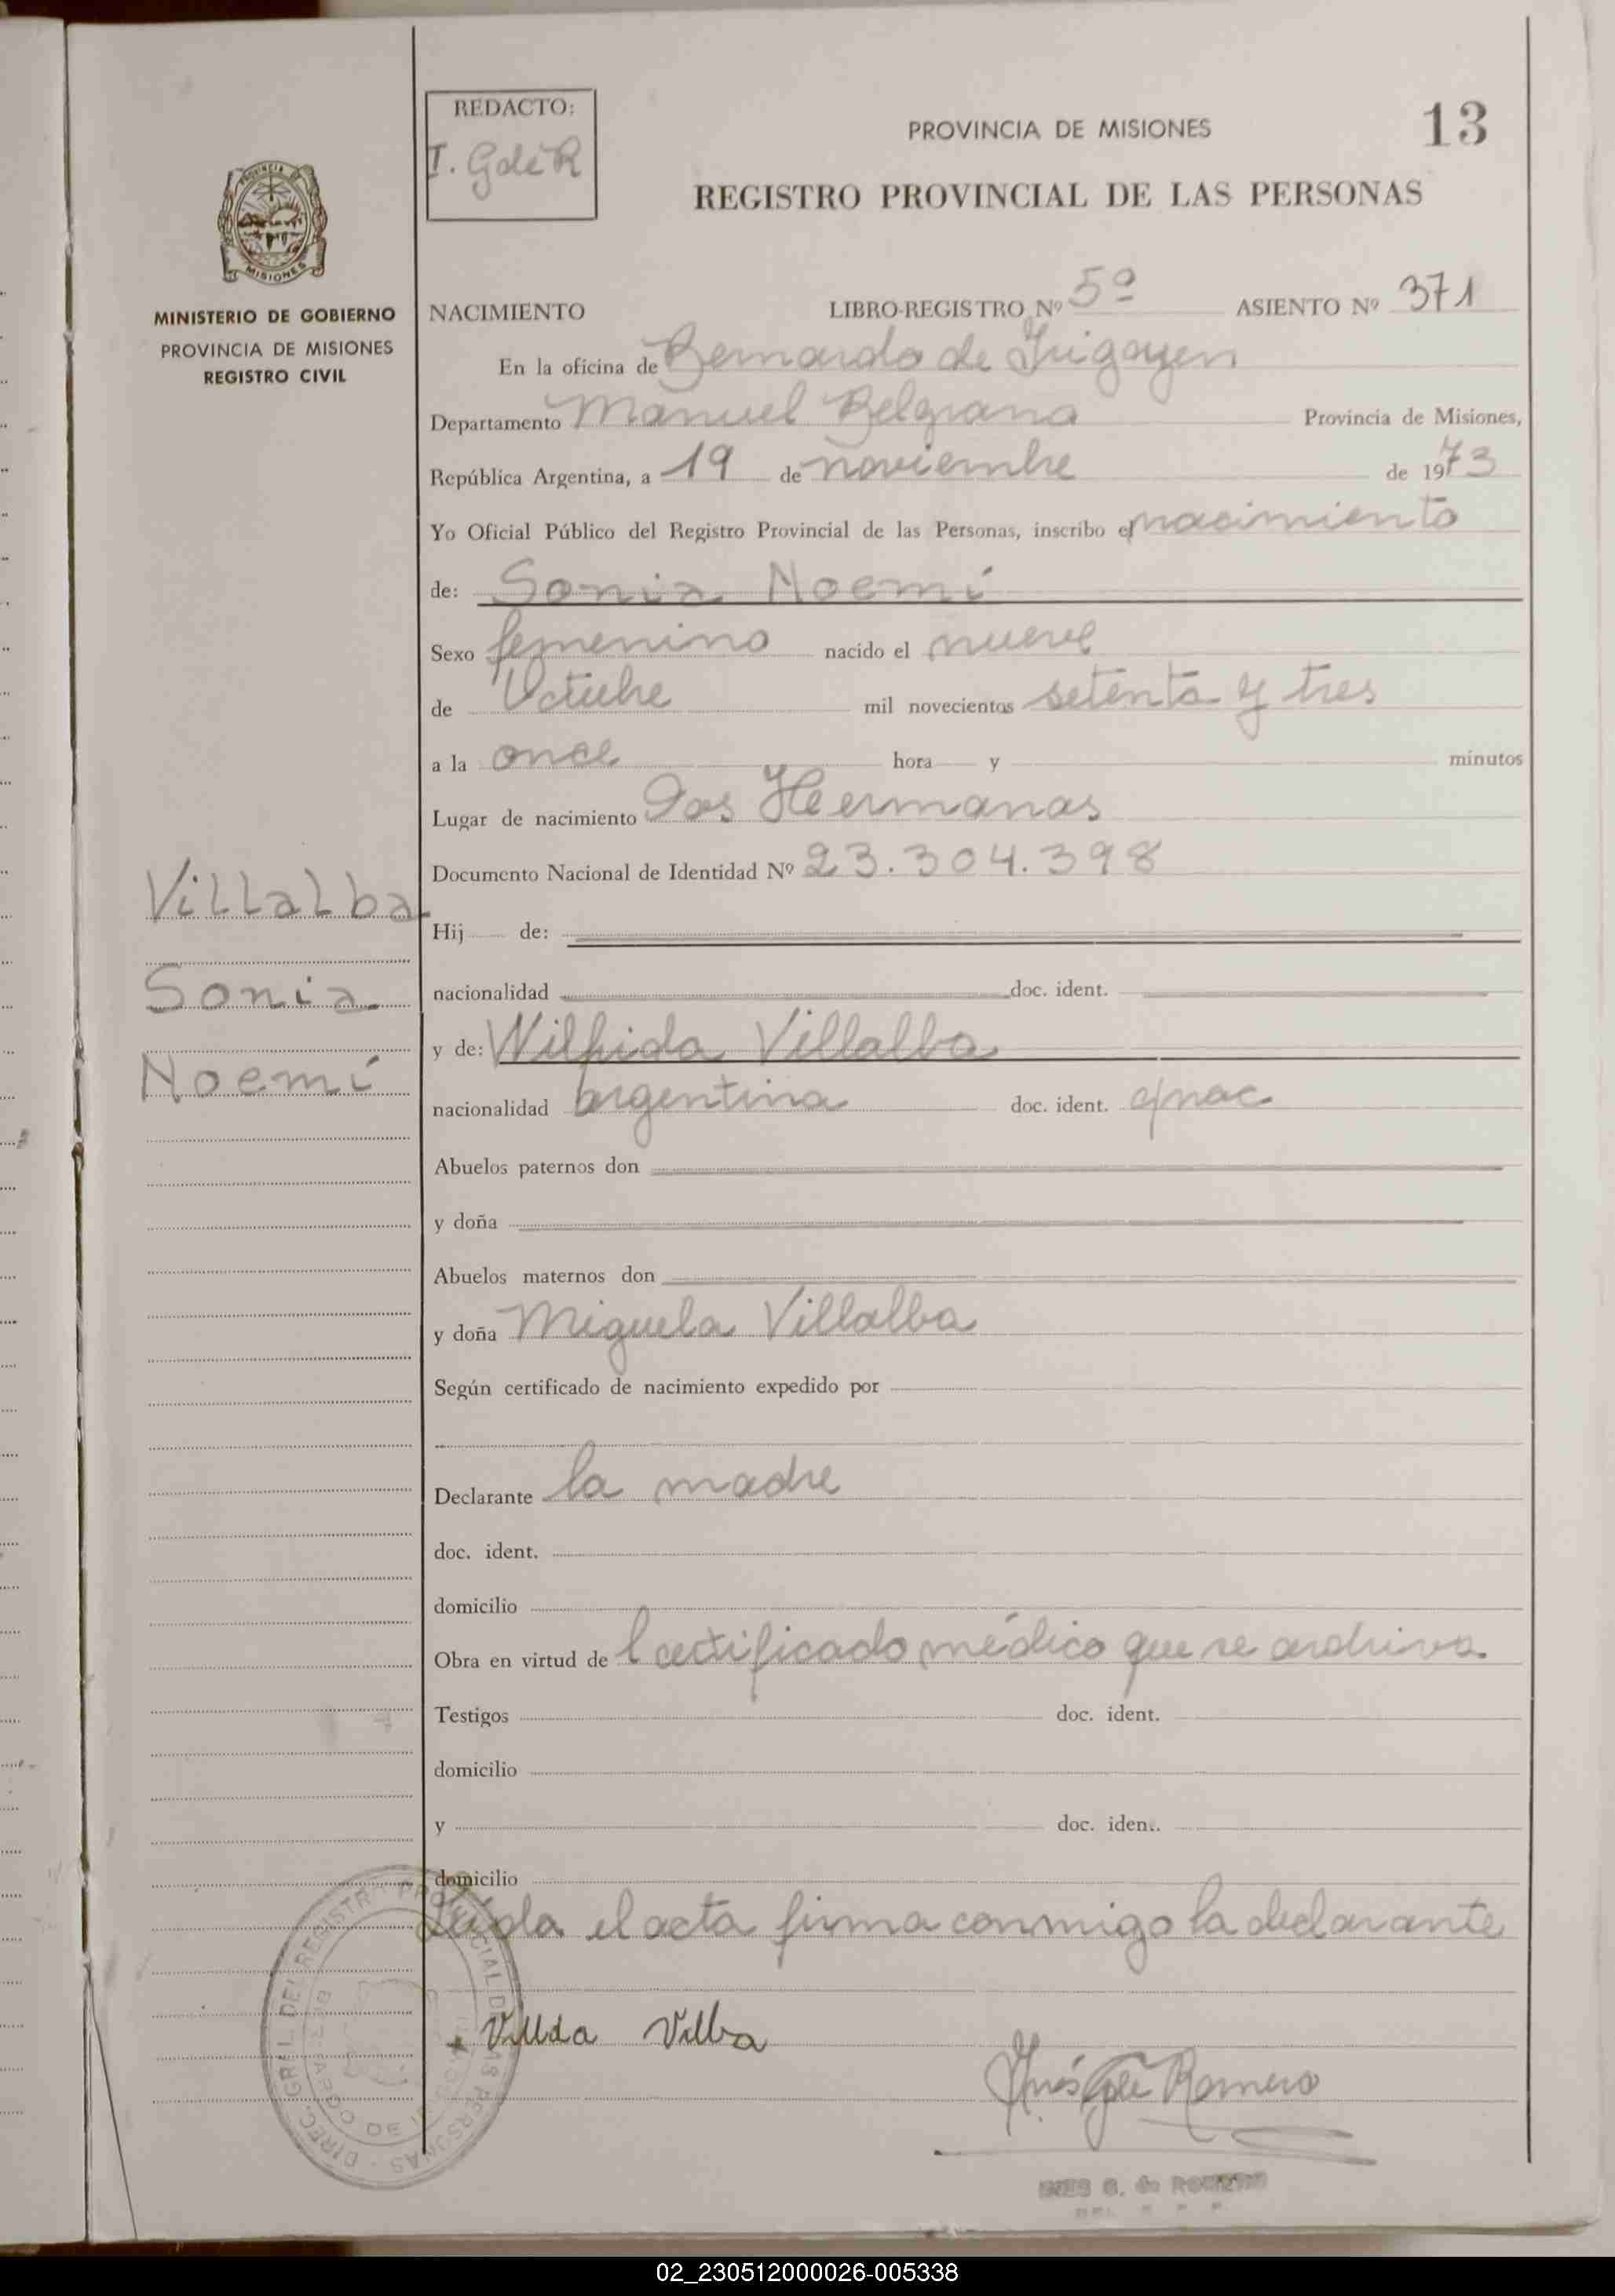 REDACTO:
I. G de R
PROVINCIA DE MISIONES
13
REGISTRO PROVINCIAL DE LAS PERSONAS
MISIONES
MINISTERIO DE GOBIERNO
PROVINCIA DE MISIONES
REGISTRO CIVIL
NACIMIENTO LIBRO-REGISTRO Nº 5º ASIENTO Nº 371
En la oficina de Bernardo de Irigoyen
Departamento Manuel Belgrano Provincia de Misiones,
República Argentina, a 19 de noviembre de 1973
Yo Oficial Público del Registro Provincial de las Personas, inscribo el nacimiento
de: Sonia Noemí
Sexo femenino nacido el nueve
de Octubre mil novecientos setenta y tres
a la once hora y minutos
Lugar de nacimiento Dos Hermanas
Documento Nacional de Identidad Nº 23.304.398
Villalba
Sonia
Noemí
Hij de:
nacionalidad doc. ident.
y de: Wilfrida Villalba
nacionalidad argentina doc. ident.
Abuelos paternos don
y doña
Abuelos maternos don
y doña Miguela Villalba
Según certificado de nacimiento expedido por
Declarante la madre
doc. ident.
domicilio
Obra en virtud de l certificado médico que se archiva.
Testigos doc. ident.
domicilio
y doc. iden..
domicilio
Leída el acta firma conmigo la declarante
Villda Villba
Inés G de Romero
INES G. de ROMERO
DIREC. GRL. DEL REGISTRO PROVINCIAL DE LAS PERSONAS
02_230512000026-005338